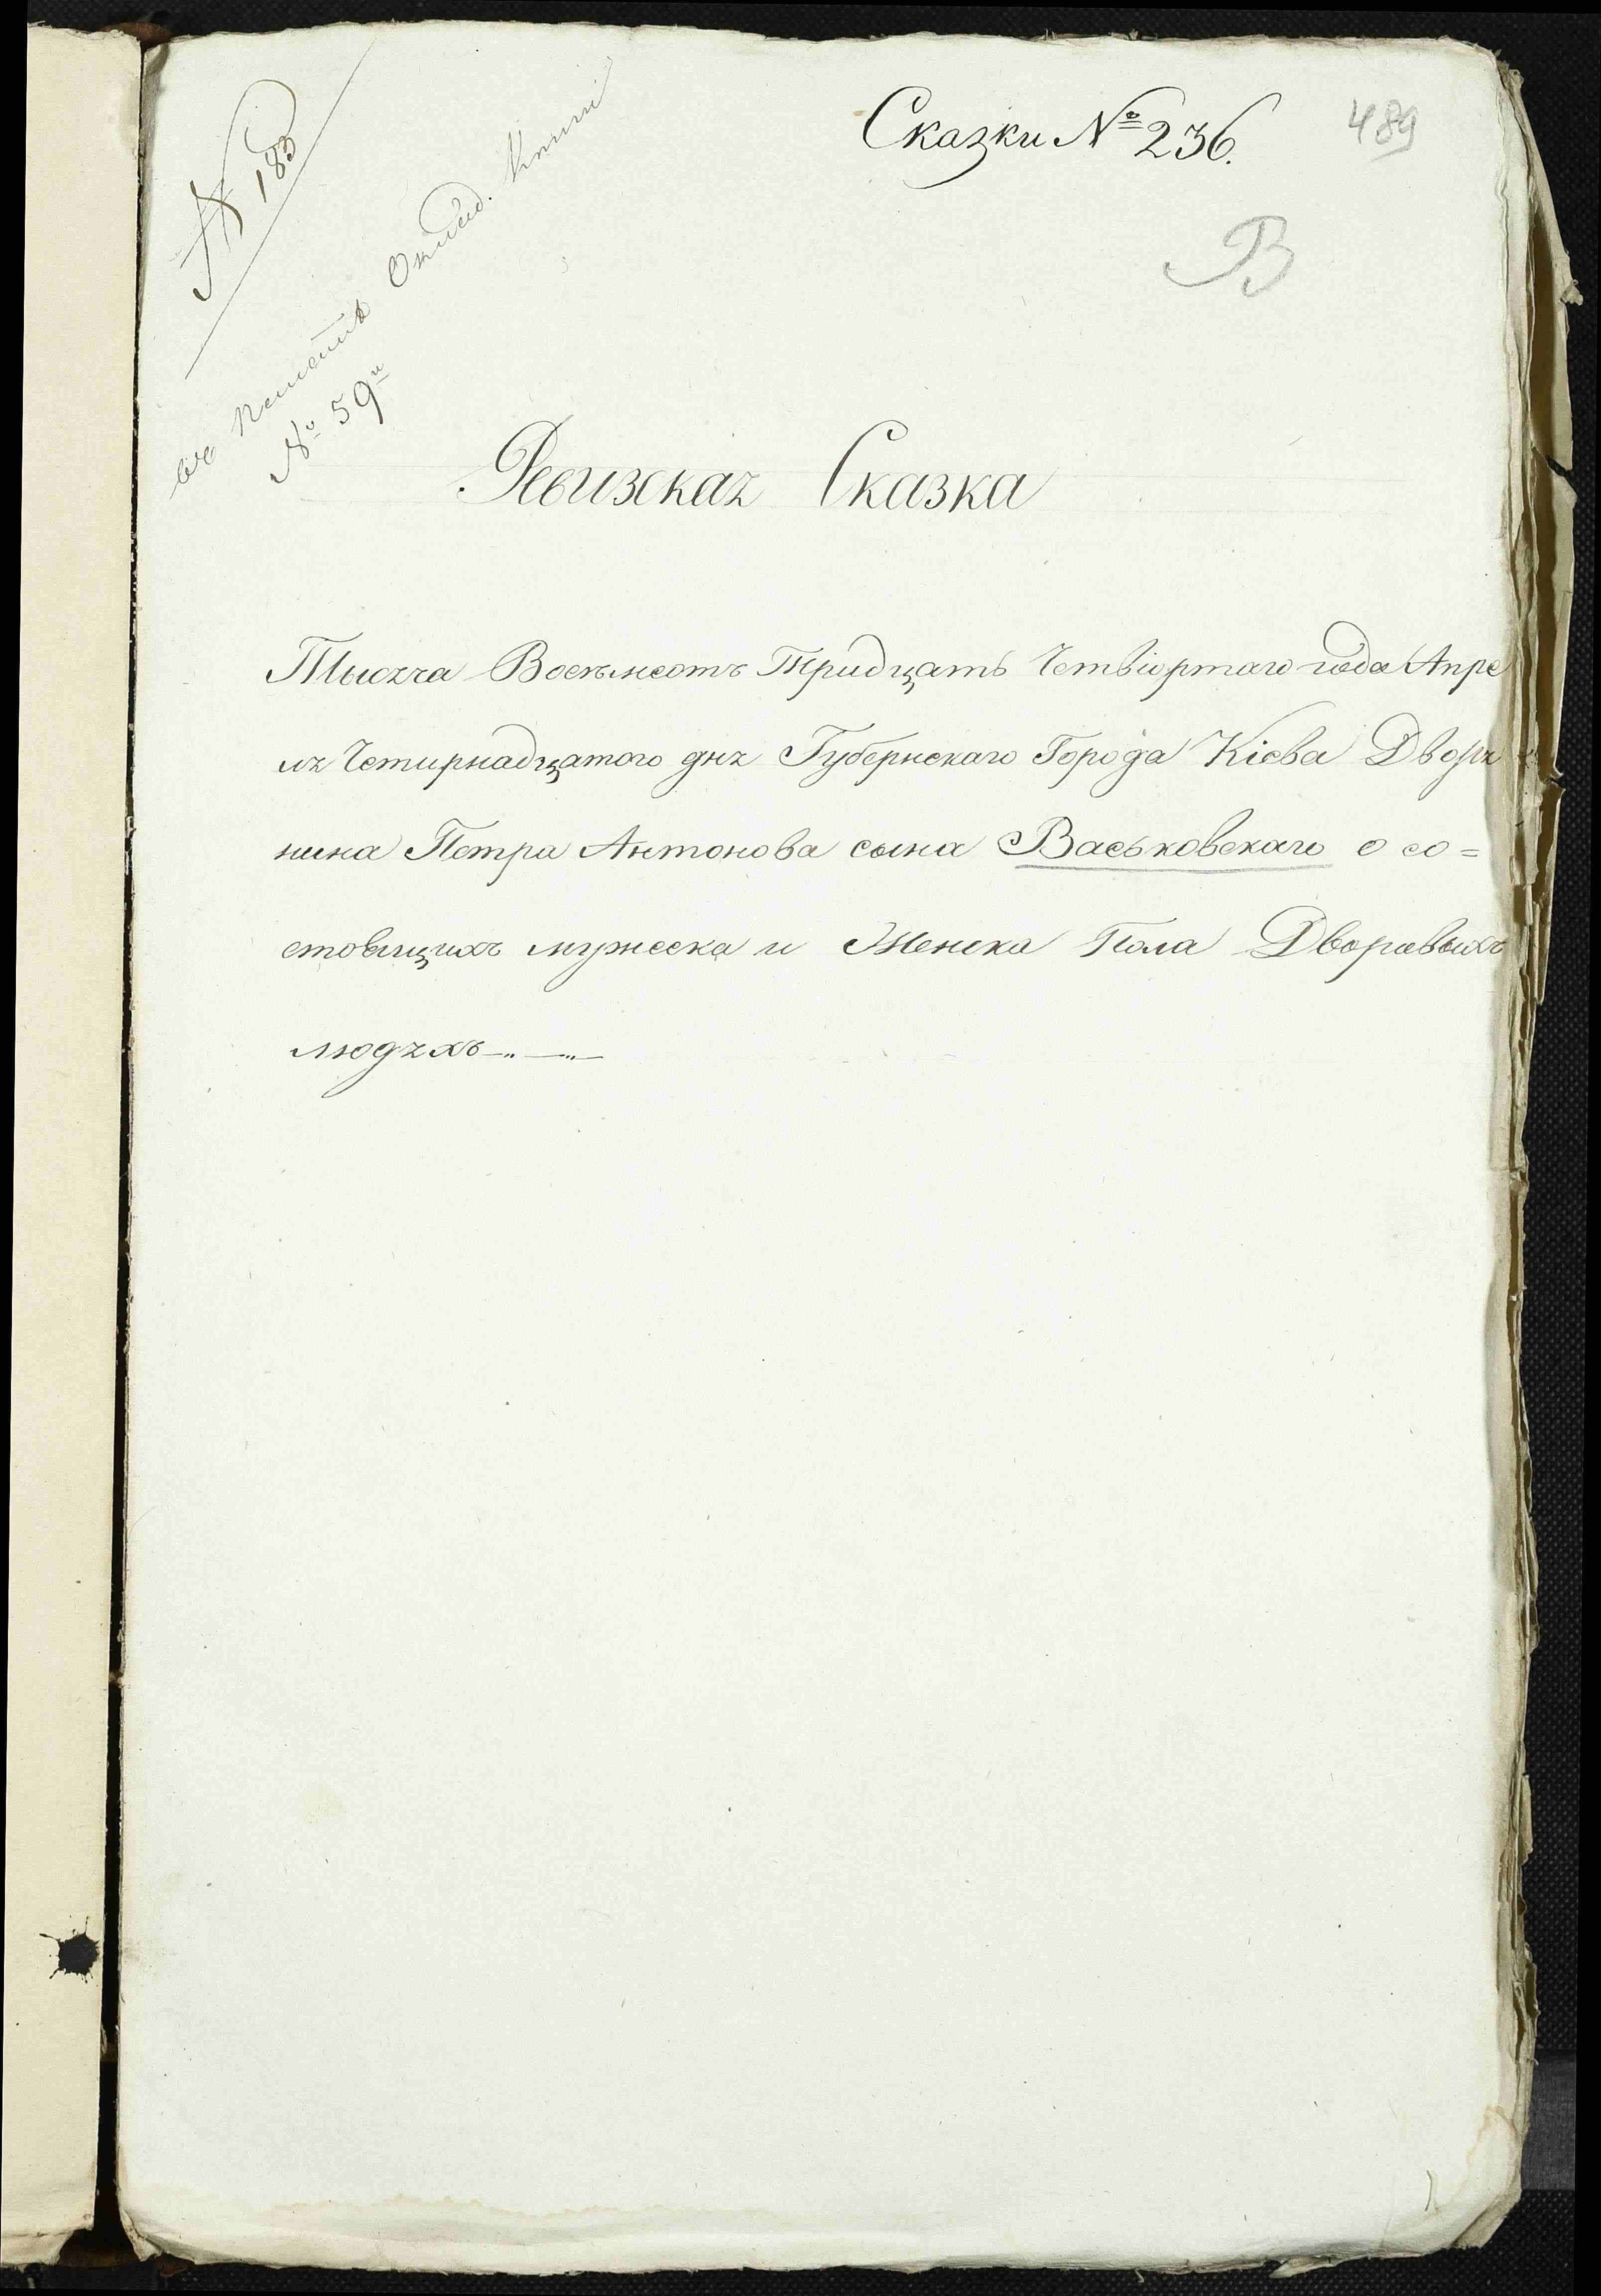 Сказки № 236.
489
В
№ 183
№ 59
Ревизская Сказка
Тысяча Восемьсотъ Тридцать Четвіортаго года Апре
ля Четирнадцатого дня Губернскаго Города Кіева Дворя
нина Петра Антонова сына Васьковскаго о со=
стоящихъ мужеска и Женска Пола Дворовыхъ
людяхъ